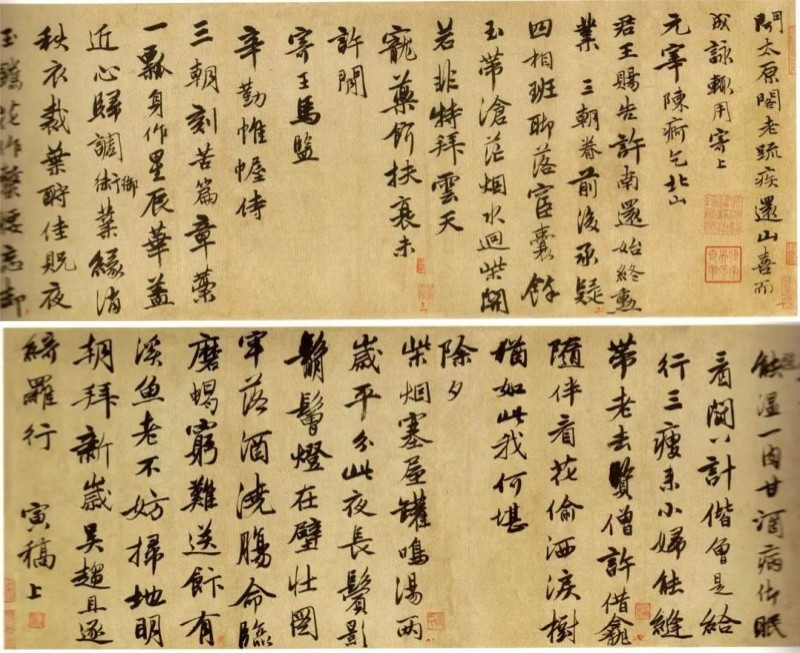 聞太原閣老疏疾還山喜而
成詠輒用寄上
元宰陳痾乞北山
君王賜告許南還始終勳
業三朝眷前後承疑
四相班聊落宦囊餘
玉帶滄茫烟水迥柴關
若非特拜雲天
寵藥餌扶衰未
許閒
寄王馬監
辛勤帷幄侍
三朝刻苦篇章藥
一瓢身作星辰華蓋
近心歸調御葉緣消
秋衣裁葉酧佳貺夜
玉花作腰忘却
一肉甘酒病佯眠
看鬪八計偕曾是給
行三瘦來小婦能縫
帶老去賢僧許借龕
隨伴看花偷洒淚樹
猶如此我何堪
除夕
柴烟塞屋罐鳴湯兩
歲平分此夜長鬢影
鬅鬙燈在壁壯圖
牢落酒澆腸命臨
磨蝎窮難送飰有
溪魚老不妨掃地明
朝拜新歲吳趨且逐
綺羅行 寅稿上